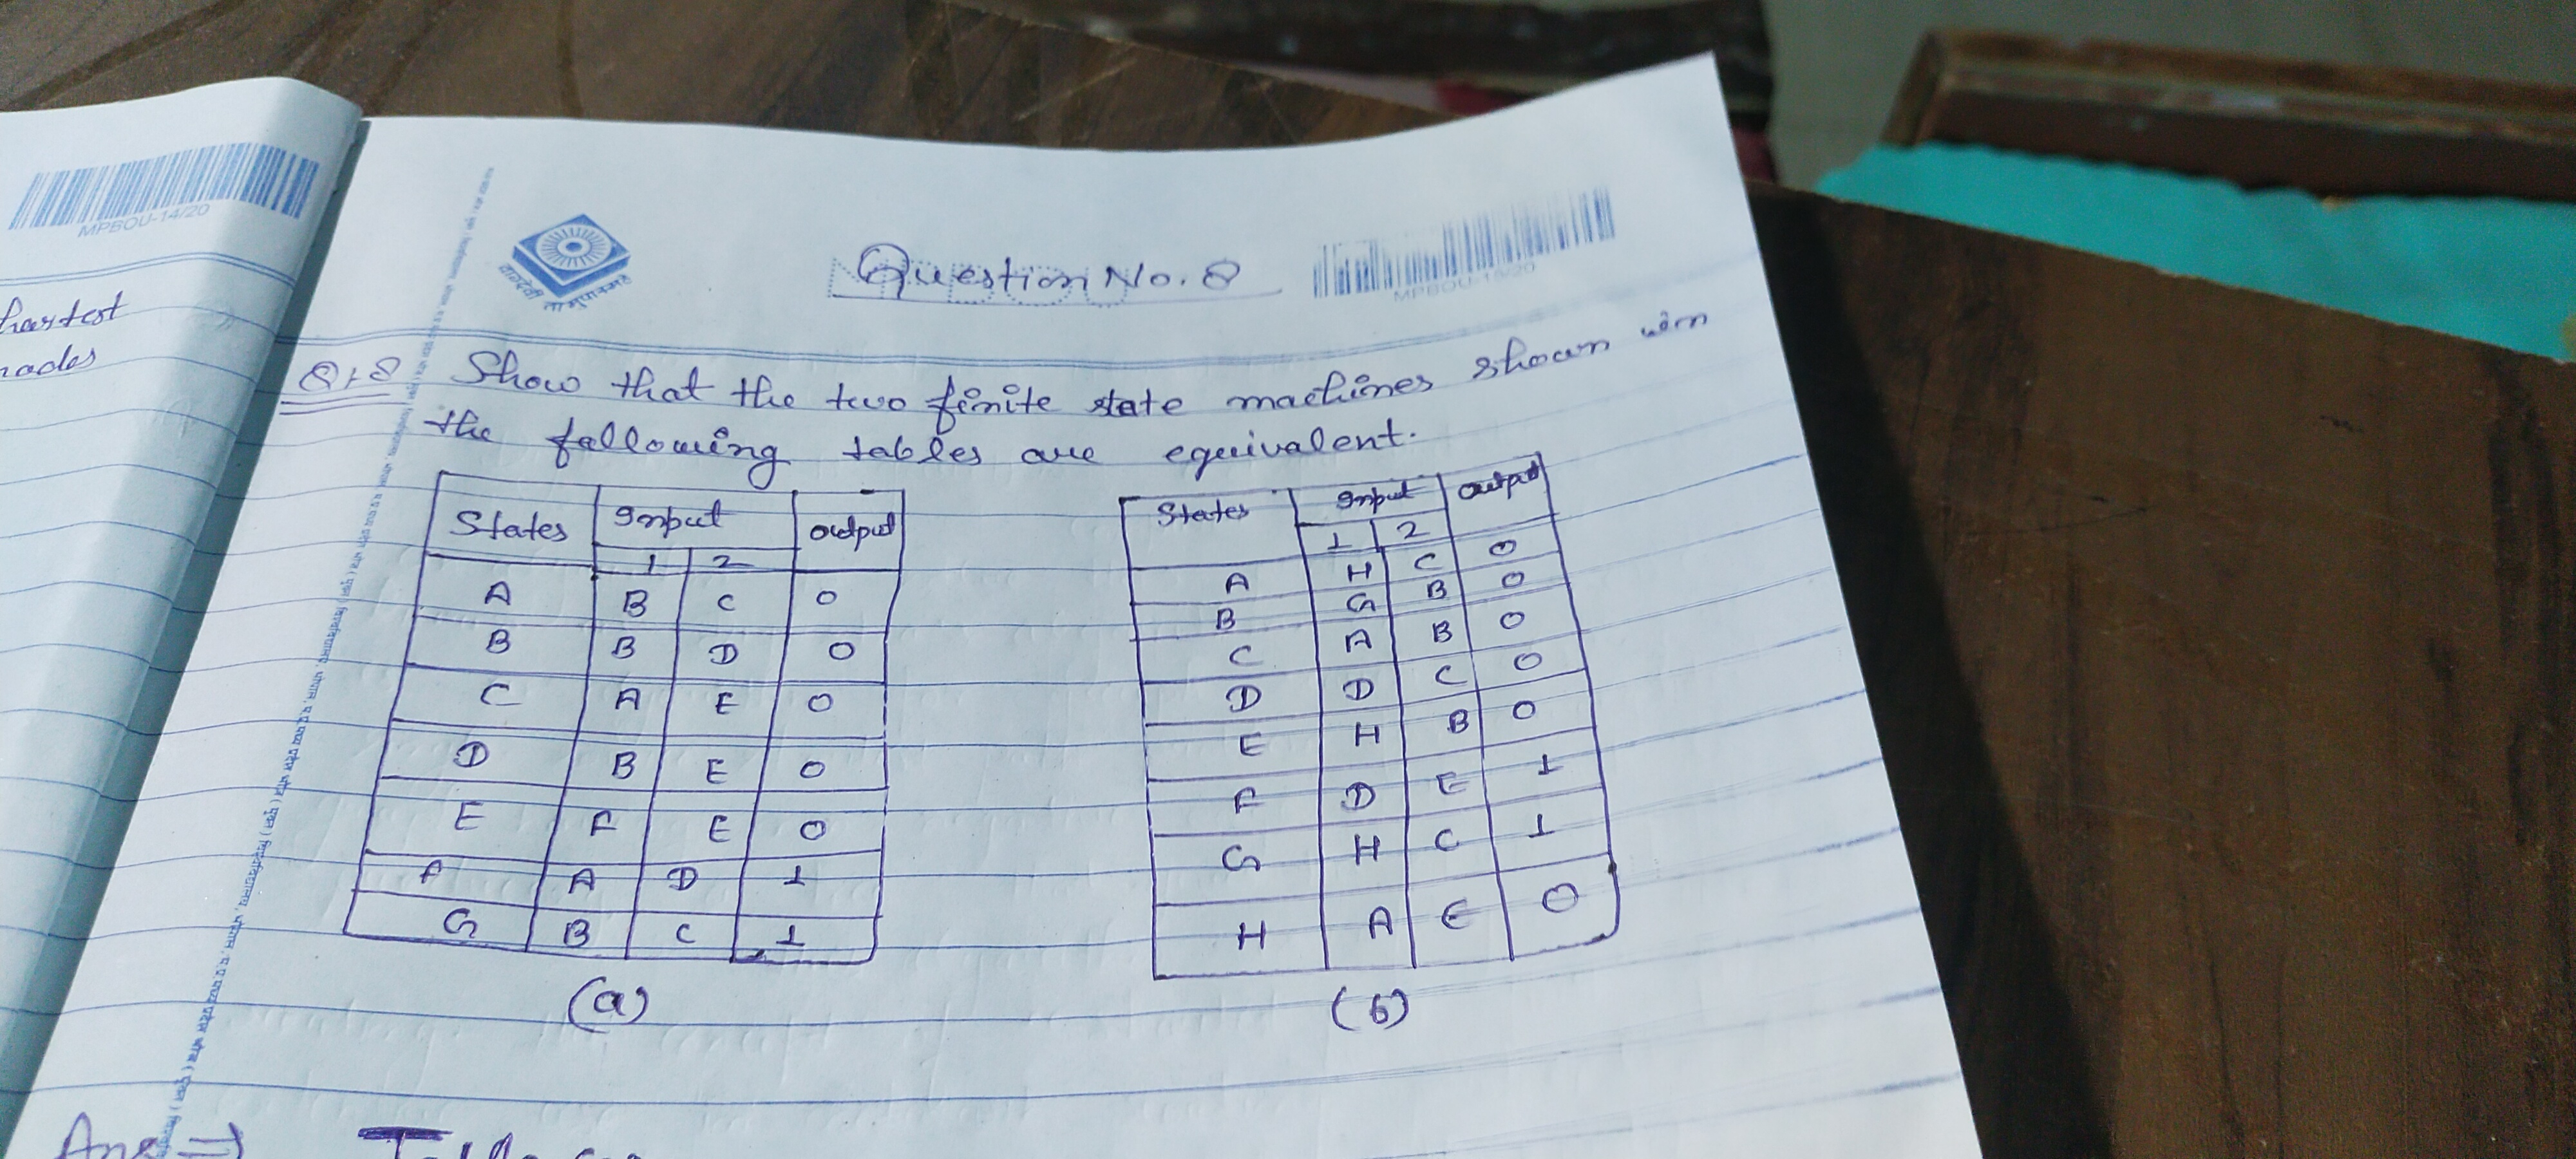 MPBOU-14/20
hortest
nodes
वाग्देवी ता मुपास्महे
Question No. 8
MPBOU-15/20
Q.8 Show that the two finite state machines shown in
the following tables are equivalent.
States Input output
1 2
A B C 0
B B D 0
C A E 0
D B E 0
E F E 0
F A D 1
G B C 1
(a)
States Input output
1 2
A H C 0
B G B 0
C A B 0
D D C 0
E H B 0
F D E 1
G H C 1
H A E 0
(b)
Ans